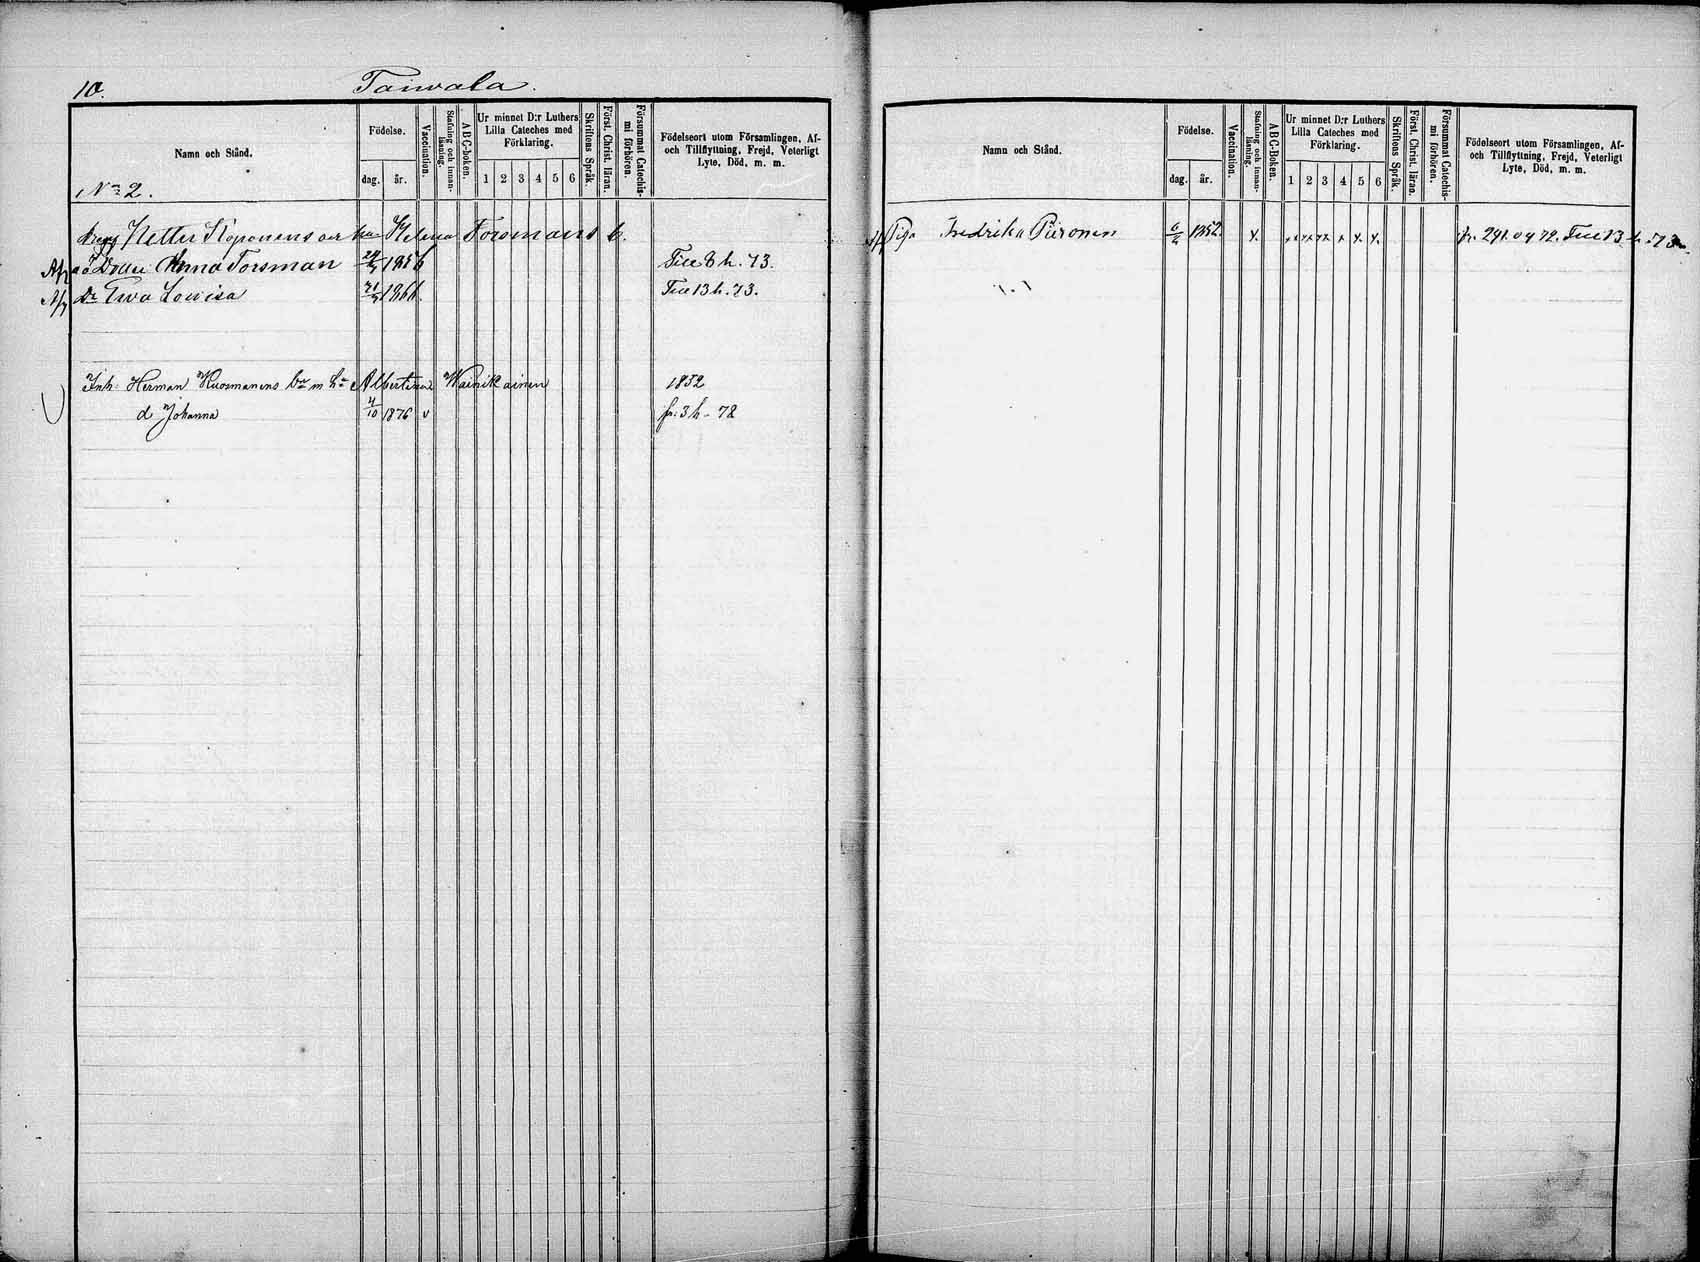 10. Taiwala.
Namn och Stånd.
Födelse.
dag. år.
Vaccination.
Stafning och innan-läsning.
A B C-boken.
Ur minnet D:r Luthers Lilla Cateches med Förklaring.
1 2 3 4 5 6
Skriftens Språk.
Först. Christ. läran.
Försummat Catechis-mi förhören.
Födelseort utom Församlingen, Af- och Tillflyttning, Frejd, Veterligt Lyte, Död, m. m.
No 2.
Petter Koponens och Helena Forsmans b.
Dotter Anna Forsman 1856 Till 8 h. 73.
Dr Ewa Lowisa 1866. Till 13 h. 73.
Inh. Herman Kuosmanens m h Albertina Wainikainen 1852
d Johanna 4/10 1876 v fr: 3 h - 78
Namn och Stånd.
Födelse.
dag. år.
Vaccination.
Stafning och innan-läsning.
A B C-boken.
Ur minnet D:r Luthers Lilla Cateches med Förklaring.
1 2 3 4 5 6
Skriftens Språk.
Först. Christ. läran.
Försummat Catechis-mi förhören.
Födelseort utom Församlingen, Af- och Tillflyttning, Frejd, Veterligt Lyte, Död, m. m.
Piga Fredrika Piironen 1852. x x x x x x x Till 13 h. 73